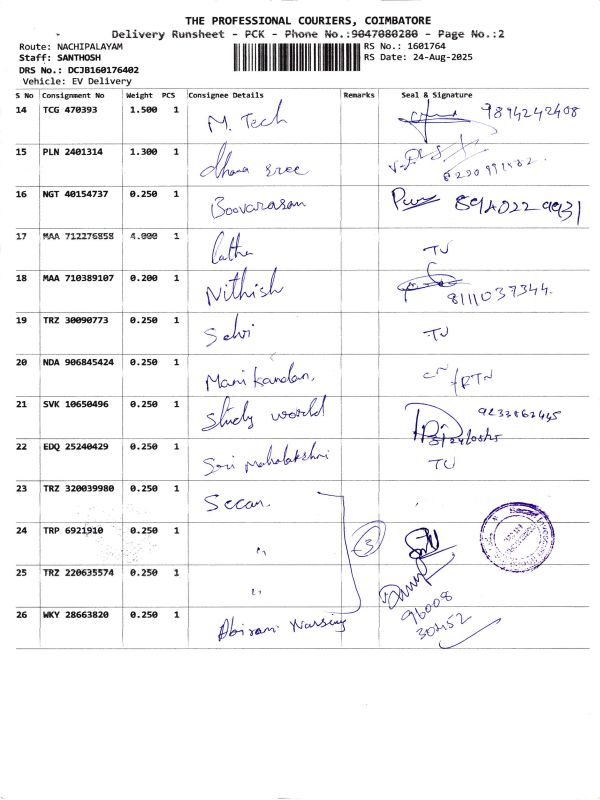 THE PROFESSIONAL COURIERS, COIMBATORE
Delivery Runsheet - PCK - Phone No.:9047080280 - Page No.:2
Route: NACHIPALAYAM RS No.: 1601764
Staff: SANTHOSH RS Date: 24-Aug-2025
DRS No.: DCJB160176402
Vehicle: EV Delivery
S No Consignment No Weight PCS Consignee Details Remarks Seal & Signature
14 TCG 470393 1.500 PC 1 M. Tech 9894242408
15 PLN 2401314 1.300 1 dhana sree
16 NGT 40154737 0.250 1 Boovarasan 8940229931
17 MAA 712276858 4.000 1 Latha TU
18 MAA 710389107 0.200 1 Nithish 8111037344.
19 TRZ 30090773 0.250 1 Selvi TU
20 NDA 906845424 0.250 1 Manikandan, RTN
21 SVK 10650496 0.250 1 Study world
22 EDQ 25240429 0.250 1 Sri mahalakshmi TU
23 TRZ 320039980 0.250 1 Secan.
24 TRP 6921910 0.250 1 " 3
25 TRZ 220635574 0.250 1 "
26 WKY 28663820 0.250 1 Abirami Nursing 96008
30452